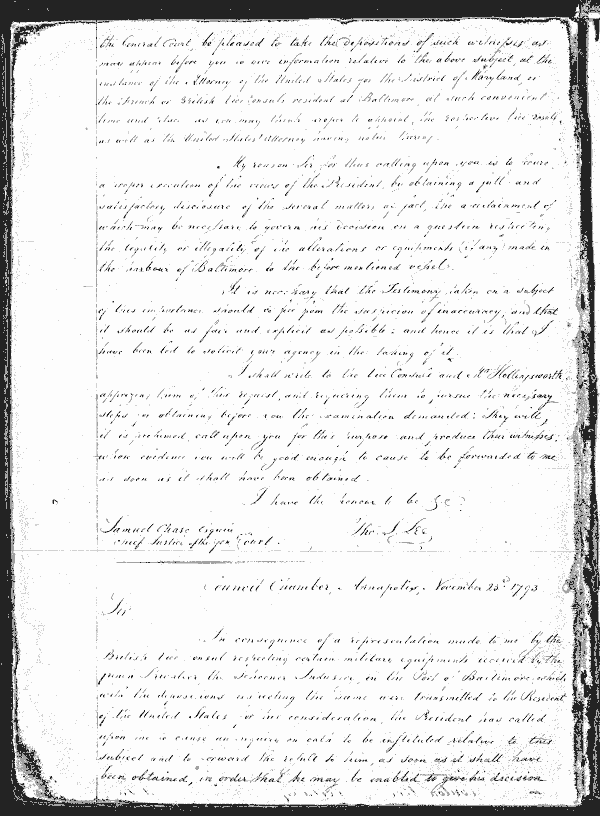 the General Court, be pleased to take the depositions of such witnesses as
may appear before you to give information relative to the above subject, at the
instance of the Attorney of the United States for the District of Maryland, or
the French or British Vice Consuls resident at Baltimore, at such convenient
time and place as you may think proper to appoint, the respective Vice Consuls,
as well as the United States' Attorney having notice thereof.
My reason Sir for thus calling upon you is to
a proper execution of the views of the President, by obtaining a full and
satisfactory disclosure of the several matters of fact, the ascertainment of
which may be necessary to govern his decision on a question respecting
the legality or illegality of the alterations or equipments (if any) made in
the harbour of Baltimore to the before mentioned vessel.
It is necessary that the Testimony taken on a subject
of this importance should be free from the suspicion of inaccuracy, and that
it should be as fair and explicit as possible; and hence it is that I
have been led to solicit your agency in the taking of it.
I shall write to the Vice Consuls and Mr Hollingsworth
apprizing them of this request, and requiring them to pursue the necessary
steps for obtaining before you the examination demanded: They will,
it is presumed, call upon you for this purpose and produce their witnesses;
whose evidence you will be good enough to cause to be forwarded to me
as soon as it shall have been obtained.
I have the honour to be &c
Samuel Chase Esquire
Chief Justice of the Gen Court.
Tho. S. Lee
Council Chamber, Annapolis, November 23d 1793
Sir
In consequence of a representation made to me by the
British Vice Consul respecting certain military equipments received by the
French Privateer the Schooner Industry, in the Port of Baltimore, which
with the depositions respecting the same were transmitted to the President
of the United States, for his consideration, the President has called
upon me to cause an enquiry on oath to be instituted relative to this
subject and to forward the result to him, as soon as it shall have
been obtained, in order that he may be enabled to give his decision